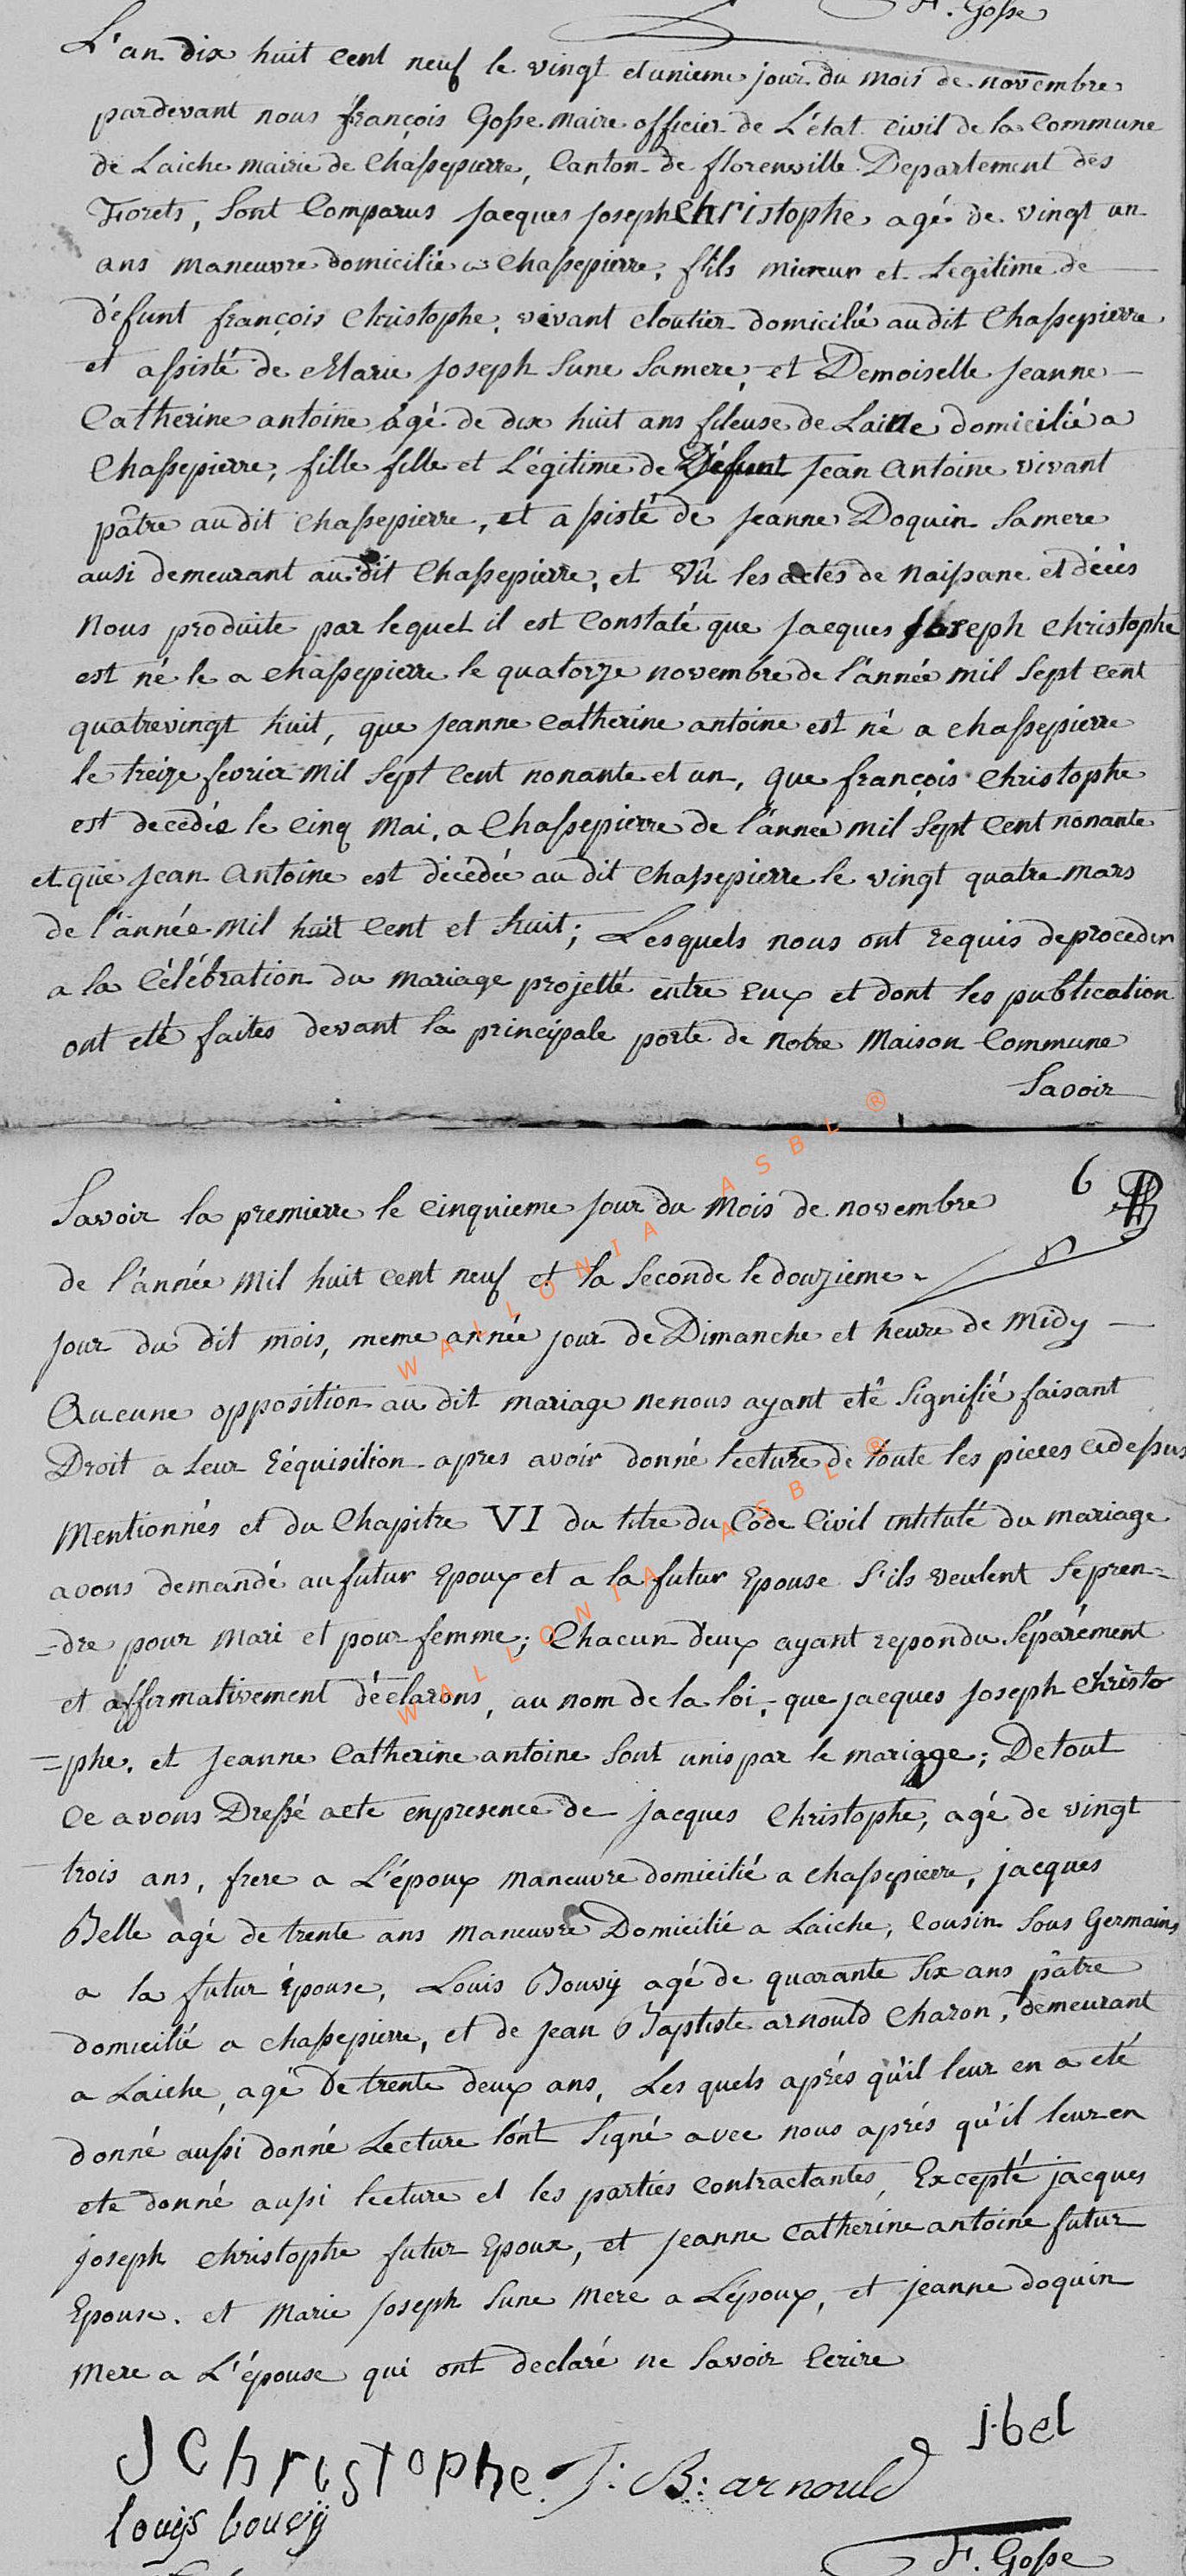 F. Gosse
L'an dix huit cent neuf le vingt et unieme jour du mois de novembre
pardevant nous françois Gosse maire officier de L'état civil de la Commune
de Laiche mairie de Chassepierre, Canton de florenville Departement des
Forets, sont Comparus jacques joseph Christophe agé de vingt un
ans maneuvre domicilié a Chassepierre, fils mineur et Legitime de
défunt françois Christophe, vivant cloutier domicilié au dit Chassepierre
et assisté de Marie joseph Sune sa mere, et Demoiselle jeanne
Catherine antoine agé de dix huit ans fileuse de Laine domicilié a
Chassepierre, fille fille et Légitime de Défunt jean Antoine vivant
pâtre au dit Chassepierre, et assisté de jeanne Doquin Sa mere
ausi demeurant au dit Chassepierre, et Vû les actes de Naissane et décés
Nous produite par lequel il est Constaté que jacques joseph christophe
est né le a chassepierre le quatorze novembre de l'année mil Sept cent
quatrevingt huit, que jeanne catherine antoine est né a chassepierre
le treize fevrier mil Sept Cent nonante et un, que françois christophe
est decédée le Cinq Mai, a Chassepierre de l'année mil Sept Cent nonante
et que jean Antoine est décédée au dit chassepierre le vingt quatre mars
de l'année mil huit Cent et huit; Lesquels nous ont requis deproceder
a la Célébration du mariage projetté entre Eux et dont les publication
ont eté faites devant la principale porte de Notre Maison Commune
Savoir
6
Savoir la premierre le Cinquieme jour du Mois de novembre
de l'année Mil huit cent neuf et la Seconde le douzieme
jour du dit mois, meme année jour de Dimanche et heure de Midy
Aucune opposition au dit mariage nenous ayant eté Signifié faisant
Droit a leur Réquisition apres avoir donné lecture de toute les pieces cidessus
Mentionnés et du Chapitre VI du titre du Code Civil intitulé du mariage
avons demandé au futur Epoux et a la futur Epouse S'ils veulent Sepren=
=dre pour Mari et pour femme; Chacun d'eux ayant repondu Séparément
et affirmativement déclarons, au nom de la loi, que jacques joseph Christo
=phe, et jeanne Catherine antoine Sont unis par le mariage; De tout
Ce avons Dressé acte enpresence de jacques Christophe, agé de vingt
trois ans, frere a L'époux maneuvre domicilié a chassepierre, jacques
Belle agé de trente ans maneuvre Domicilié a Laiche, Cousin Sous Germains
a la futur épouse, Louis Bouvÿ agé de quarante Six ans pâtre
domicilié a chassepierre, et de jean Baptiste arnould Charon, demeurant
a Laiche, agé De trente deux ans, Les quels aprés qu'il leur en a eté
donné aussi donné Lecture l'ónt Signé avec nous aprés qu'il leur en
ete donné aussi lecture et les parties Contractantes, Excepté jacques
joseph christophe futur Epoux, et jeanne Catherine antoine futur
Epouse. et Marie joseph Sune Mere a Lépoux, et jeanne doquin
Mere a L'épouse qui ont declaré ne Savoir Ecrire
J Christophe J: B: arnould j.bel
louijs bouvÿ
F. Gosse
WALLONIA ASBL ®
WALLONIA ASBL ®